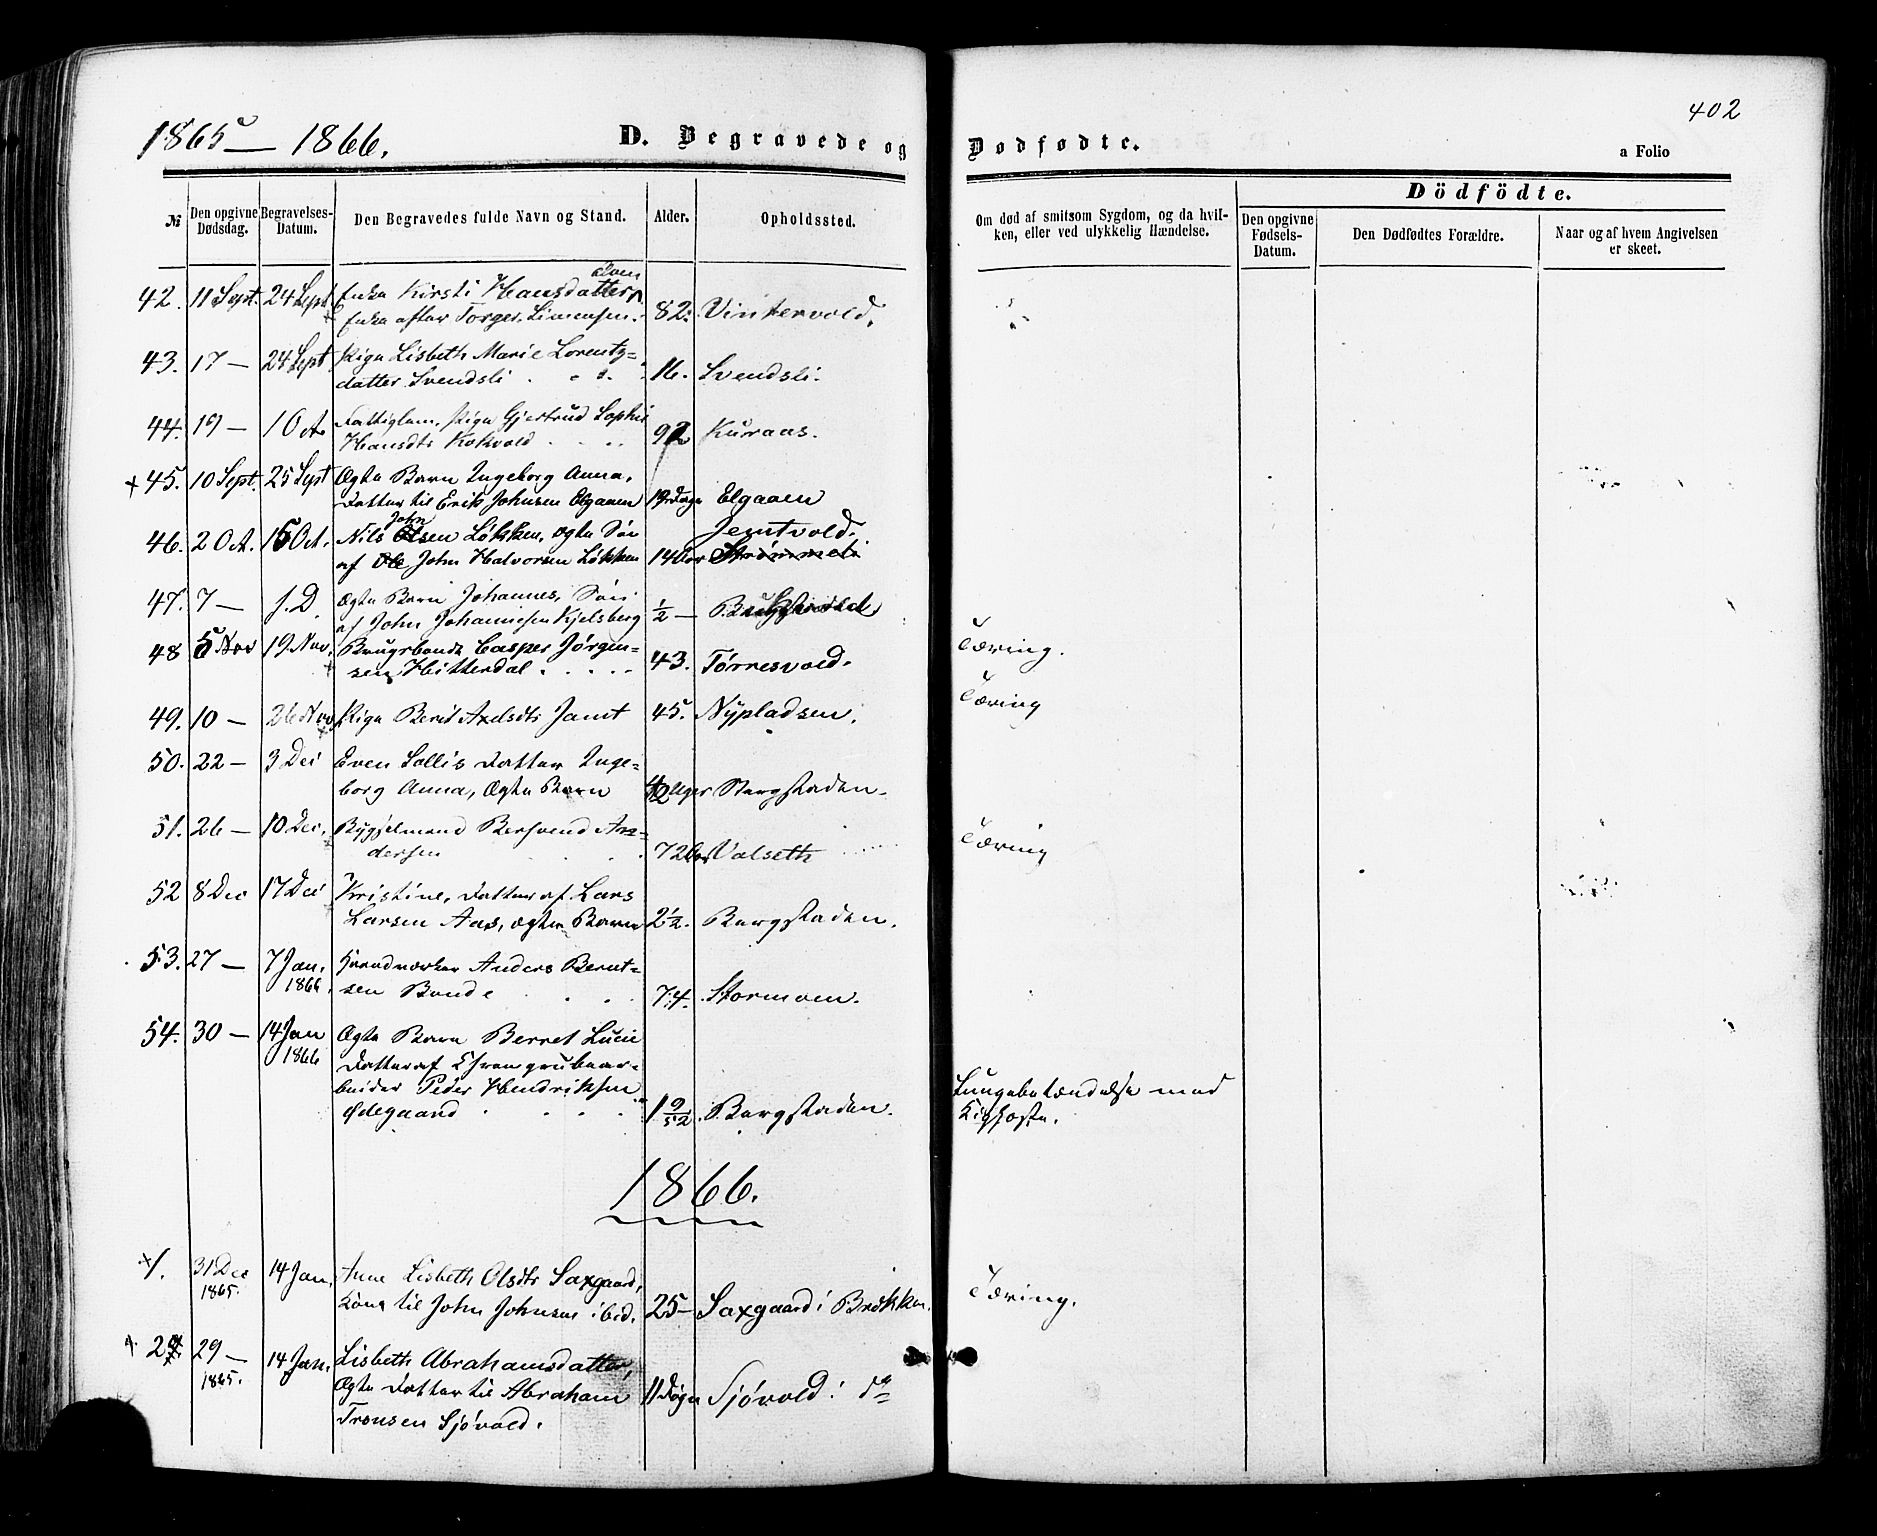 402
1865 — 1866.
D. Begravede og Dødfødte.
a Folio
№
Den opgivne Dødsdag.
Begravelses-Datum.
Den Begravedes fulde Navn og Stand.
Alder.
Opholdssted.
Om død af smitsom Sygdom, og da hvilken, eller ved ulykkelig Hændelse.
Dödfödte.
Den opgivne Fødsels-Datum.
Den Dødfødtes Forældre.
Naar og af hvem Angivelsen er skeet.
42. 11 Sept. 24 Sept Enke Kirsti Hansdatter
Enke efter Torger Simensen. 82. Vintervold.
43. 17 — 24 Sept Pige Lisbeth Marie Lorentz-
datter Svendsli 16. Svendsli.
44. 19 — 1 Oct. Fattiglem, Pige Gjertrud Sophie
Hansdtr Kokvold 92 Kuraas.
+ 45. 10 Sept. 25 Sept Ægte Barn Ingeborg Anna,
Datter til Erik Johnsen Elgaaen Elgaaen
46. 2 Oct. 15 Oct. Nils Johnsen Løkken, ægte Søn Jemtvold.
af Ole John Halvorsen Løkken 14 Aar Strømmeli
47. 7 — s. D. Ægte Barn Johannes, Søn
af John Johannesen Kjelsberg ½ —
48 5 Nov 19 Nov. Brugsbonde Casper Jørgen-
sen Hitterdal 43. Tørresvold. Tæring.
49. 10 — 26 Nov Pige Berit Axelsdtr Jamt 45. Nypladsen. Tæring
50. 22 — 3 Dec Even Sollis Datter Inge-
borg Anna, Ægte Barn Uger Bergstaden.
51. 26 — 10 Dec. Bygselmand Bersvend An-
dersen 72 Aar Valseth Tæring
52 8 Dec 17 Dec Kristine, Datter af Lars
Larsen Aas, ægte Barn 2½. Bergstaden.
53. 27 — 7 Jan. 1866. Haandværker Anders Bernt-
sen Bonde 74. Stormoen.
54. 30 — 14 Jan 1866 Ægte Barn Berret Lucie
Datter af Svovelgrubear-
beider Peder Hendriksen
Ødegaard 1 9/52. Bergstaden. Lungebetændelse med
Kighoste.
1866.
+ 1. 31 Dec 1865. 14 Jan. Anne Lisbeth Olsdtr Saxgaard,
Kone til John Johnsen ibid. 25 — Saxgaard i Brekken. Tæring.
2 29 — 1865. 14 Jan. Lisbeth Abrahamsdatter,
Ægte Datter til Abraham 11 Døgn Sjøvold i do
Tronsen Sjøvold.